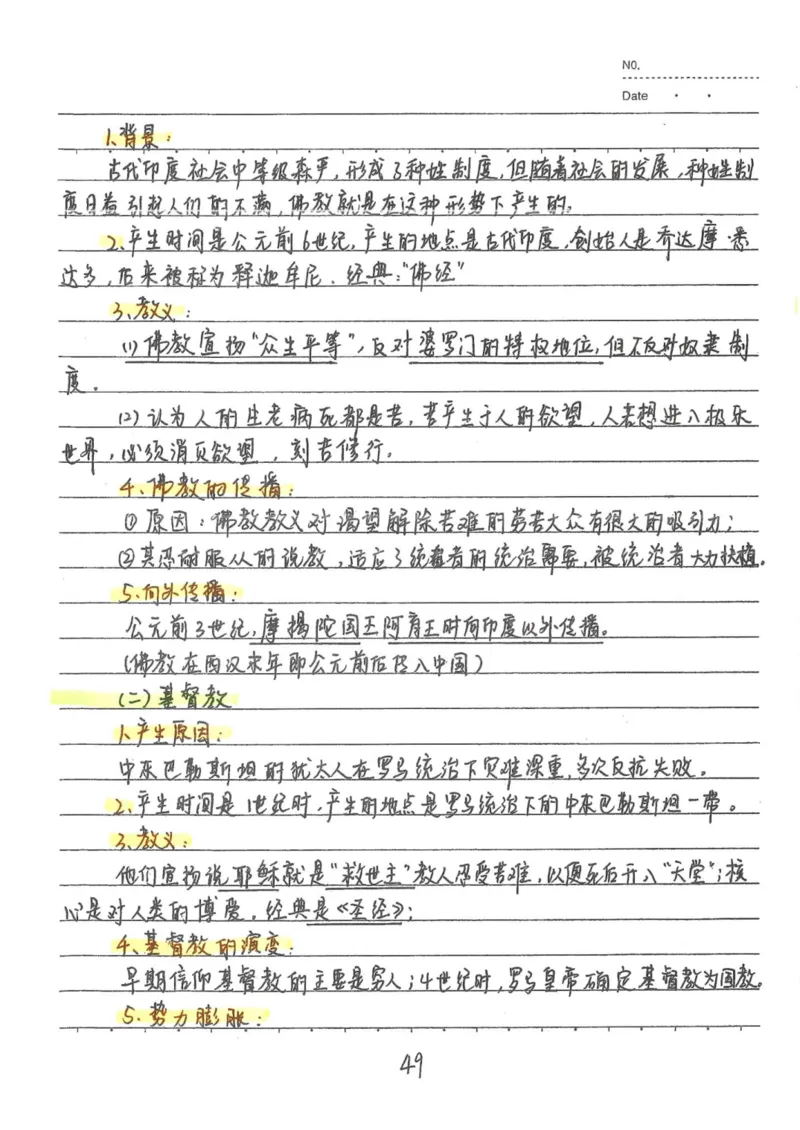 NO.
Date
1.背景:
古代印度社会中等级森严,形成了种姓制度,但随着社会的发展,种姓制
度日益引起人们的不满,佛教就是在这种形势下产生的。
2.产生时间是公元前6世纪,产生的地点是古代印度,创始人是乔达摩·悉
达多,后来被称为释迦牟尼.经典:“佛经”
3、教义:
(1)佛教宣扬“众生平等”,反对婆罗门的特权地位,但不反对奴隶制
度。
(2)认为人的生老病死都是苦,苦产生于人的欲望,人若想进入极乐
世界,必须消灭欲望,刻苦修行。
4、佛教的传播:
①原因:佛教教义对渴望解除苦难的劳苦大众有很大的吸引力;
②其忍耐服从的说教,适应了统治者的统治需要,被统治者大力扶植。
5.向外传播:
公元前3世纪,摩揭陀国王阿育王时向印度以外传播。
(佛教在西汉末年即公元前后传入中国)
(二)基督教
1.产生原因:
中东巴勒斯坦的犹太人在罗马统治下灾难深重,多次反抗失败。
2.产生时间是1世纪时,产生的地点是罗马统治下的中东巴勒斯坦一带。
3.教义:
他们宣扬说耶稣就是“救世主”教人忍受苦难,以便死后升入“天堂”;核
心是对人类的博爱,经典是《圣经》;
4、基督教的演变:
早期信仰基督教的主要是穷人;4世纪时,罗马皇帝确定基督教为国教。
5.势力膨胀:
49